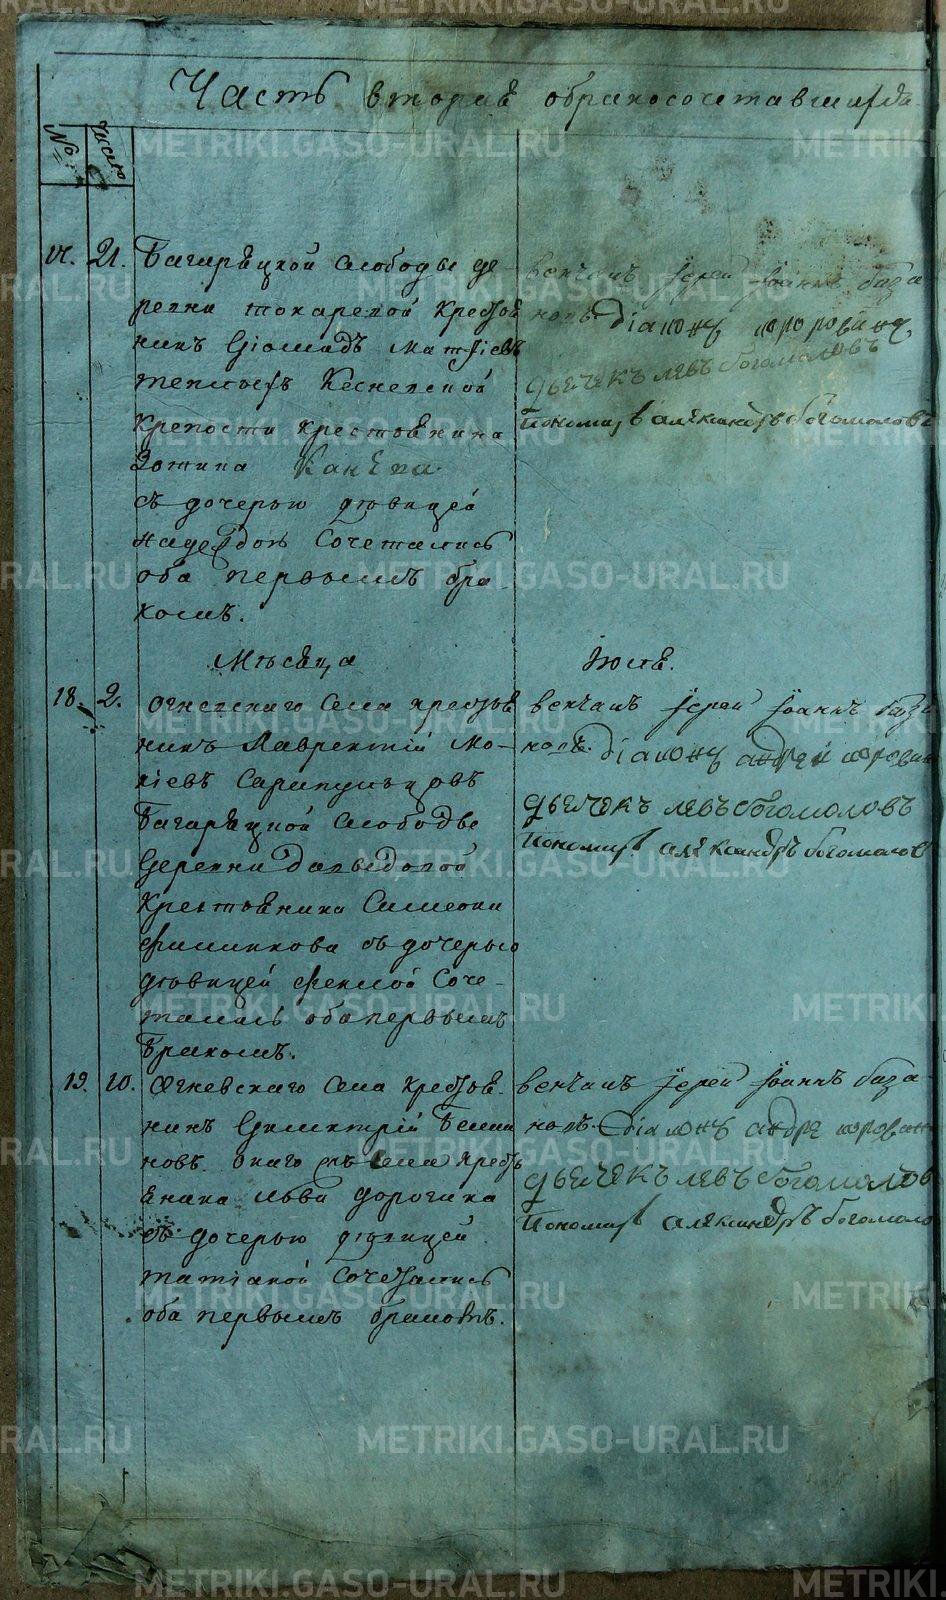 Часть вторая обракосочетавшихся
№
Число
17. 21. Багаряцкой слободы де
ревни токаревой крестья
нинъ Діомидъ Матфіевъ
Кеслепской
крепости крестьянина
Зотина Канѣва
съ дочерью дѣвицей
надеждой сочетались
оба первымъ бра
комъ.
венчалъ іерей іоаннъ база
новъ. діаконъ
дьячекъ левъ богомоловъ
пономарь александръ богомоловъ
Мѣсяца Іюля.
18. 2. Огневскаго села крестья
нинъ Лаврентій Мо
кіевъ Сарапульцовъ
Багаряцкой слободы
деревни Давыдовой
крестьянина Симеона
Филипкова съ дочерью
дѣвицей феклой соче
тались оба первымъ
бракомъ.
венчалъ іерей іоаннъ база
новъ. діаконъ андрей
дьячекъ левъ богомоловъ
пономарь александръ богомолов
19. 10. Огневскаго села крестья
нинъ Димитрій
новъ онаго жъ села кресть
янина львы дорогина
съ дочерью дѣвицей
татіаной сочетались
оба первымъ бракомъ.
венчалъ іерей іоаннъ база
новъ. діаконъ андре
дьячекъ левъ богомолов
пономарь александръ богомоло
METRIKI.GASO-URAL.RU